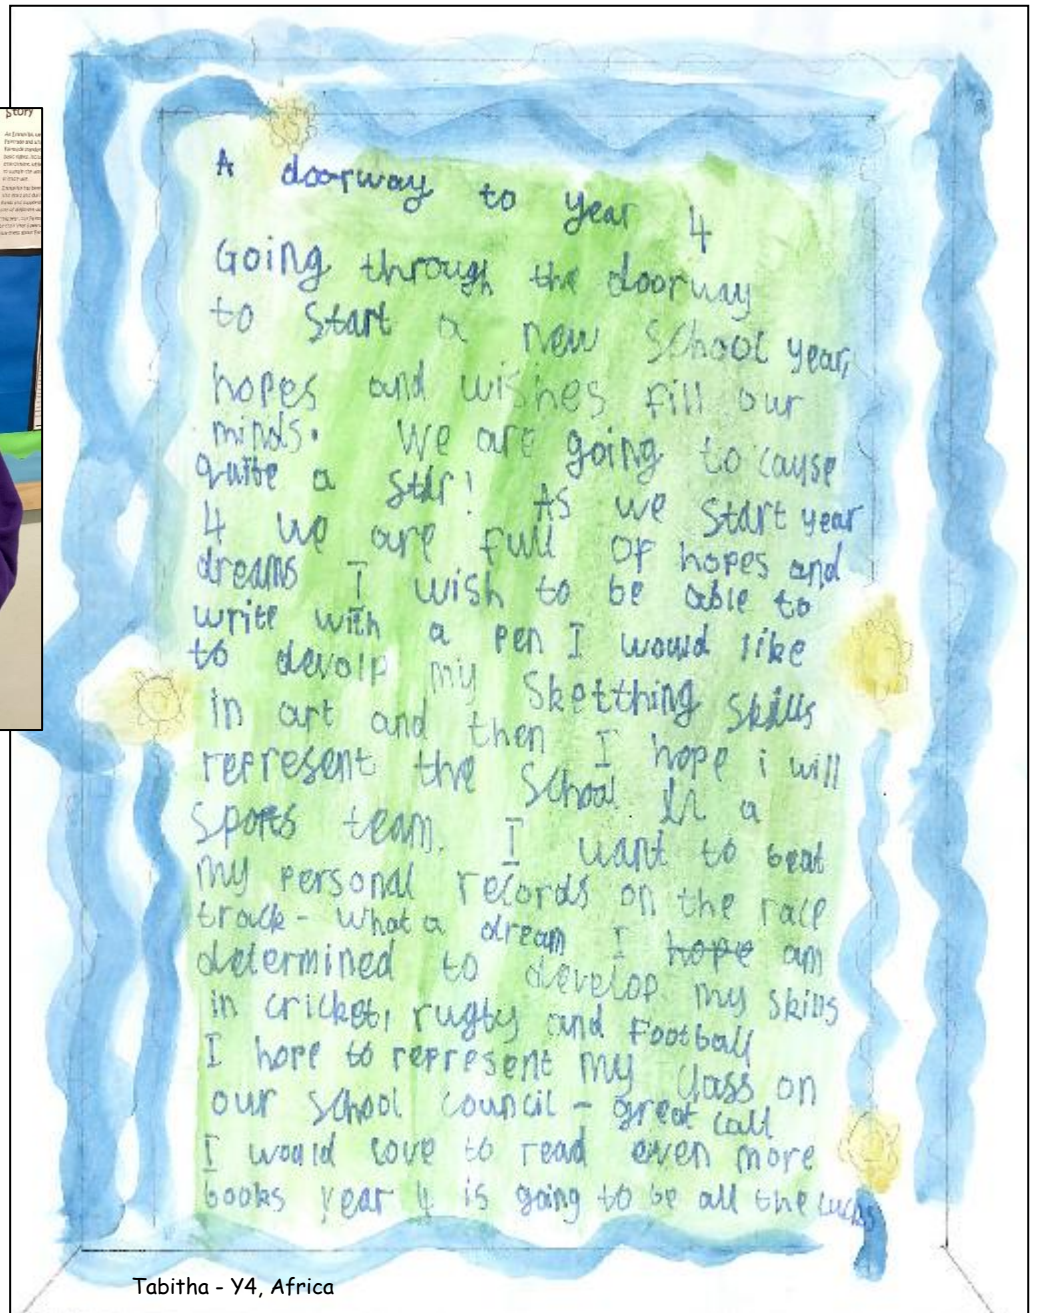 Story
A doorway to year 4
Going through the doorway
to start a new school year,
hopes and wishes fill our
minds. We are going to cause
quite a stir! As we start year
4 we are full of hopes and
dreams I wish to be able to
write with a pen I would like
to devolp my sketthing skills
in art and then I hope i will
represent the school in a
sports team. I want to beat
my personal records on the race
track - what a dream I hope am
determined to develop my skills
in cricket, rugby and football
I hope to represent my class on
our school council - great call
I would love to read even more
books year 4 is going to be all the
Tabitha - Y4, Africa